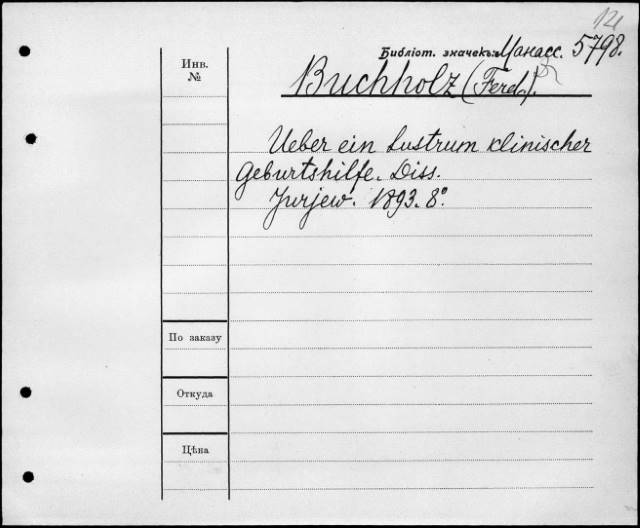 121
Библіот. значекъ Манасс. 5798.
Инв.
№
Buchholz (Ferd.).
Ueber ein Lustrum klinischer
Geburtshilfe. Diss.
Jurjew. 1893. 8°.
По заказу
Откуда
Цѣна